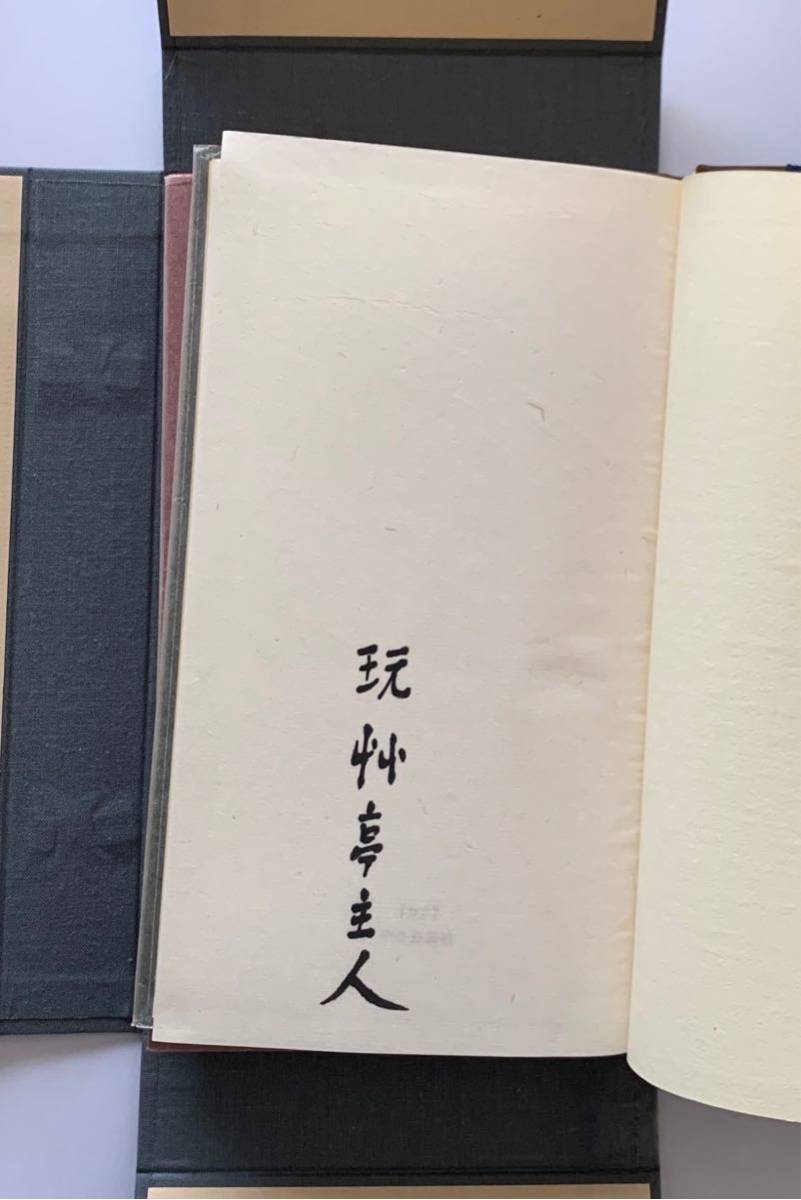 玩艸亭主人